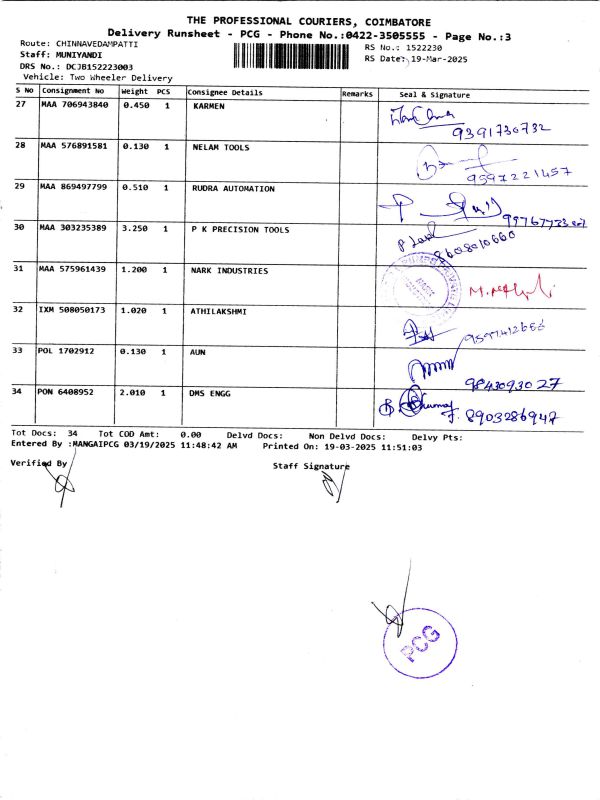 THE PROFESSIONAL COURIERS, COIMBATORE
Delivery Runsheet - PCG - Phone No.:0422-3505555 - Page No.:3
Route: CHINNAVEDAMPATTI
Staff: MUNIYANDI
DRS No.: DCJB152223003
Vehicle: Two Wheeler Delivery
RS No.: 1522230
RS Date: 19-Mar-2025
S No Consignment No Weight PCS Consignee Details Remarks Seal & Signature
27 MAA 706943840 0.450 1 KARMEN
9391730732
28 MAA 576891581 0.130 1 NELAM TOOLS
9597221457
29 MAA 869497799 0.510 1 RUDRA AUTOMATION
30 MAA 303235389 3.250 1 P K PRECISION TOOLS
8608010660
31 MAA 575961439 1.200 1 NARK INDUSTRIES
32 IXM 508050173 1.020 1 ATHILAKSHMI
33 POL 1702912 0.130 1 AUN
9843093027
34 PON 6408952 2.010 1 DMS ENGG
8903286947
Tot Docs: 34 Tot COD Amt: 0.00 Delvd Docs: Non Delvd Docs: Delvy Pts:
Entered By :MANGAIPCG 03/19/2025 11:48:42 AM Printed On: 19-03-2025 11:51:03
Verified By Staff Signature
PCG